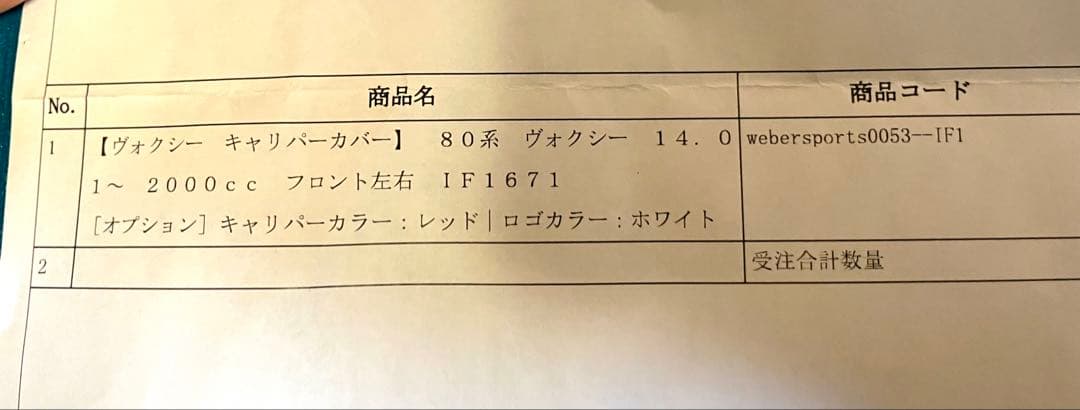 No. 商品名 商品コード
1 【ヴォクシー　キャリパーカバー】　８０系　ヴォクシー　１４．０ webersports0053--IF1
１～　２０００ｃｃ　フロント左右　ＩＦ１６７１
[オプション] キャリパーカラー：レッド｜ロゴカラー：ホワイト
2 受注合計数量